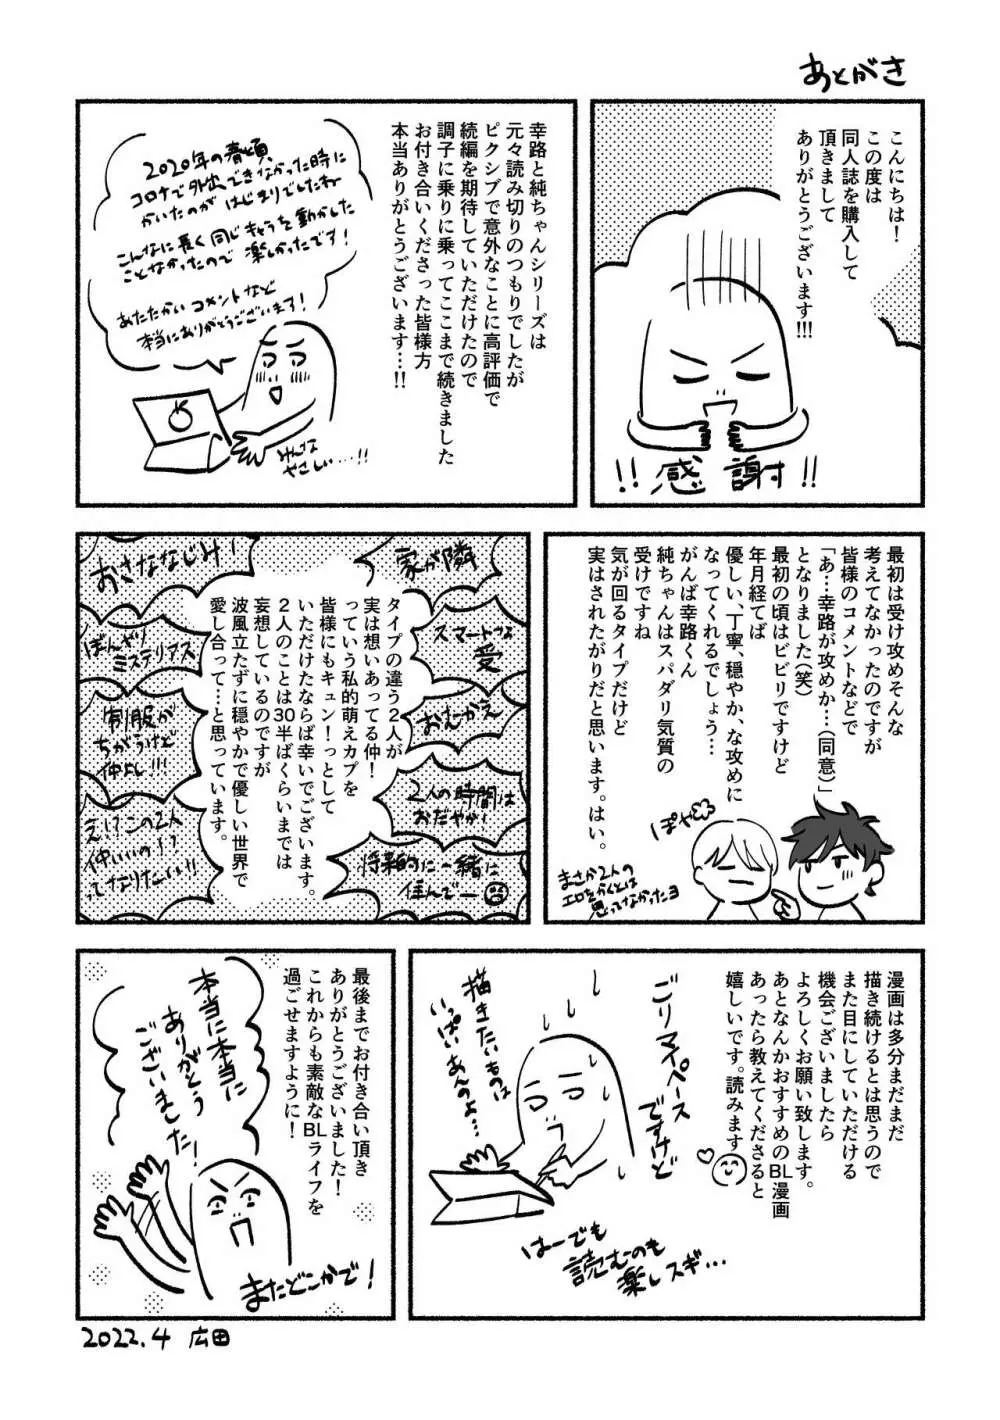 あとがき
こんにちは!
この度は
同人誌を購入して
頂きまして
ありがとうございます!!!
!!感謝!!
幸路と純ちゃんシリーズは
元々読み切りのつもりでしたが
ピクシブで意外なことに高評価で
続編を期待していただけたので
調子に乗りに乗ってここまで続きました
お付き合いくださった皆様方
本当ありがとうございます…!!
2020年の春頃、
コロナで外出できなかった時に
かいたのがはじまりでしたねー
こんなに長く同じキャラを動かした
ことなかったので楽しかったです!
あたたかいコメントなど
本当にありがとうございます!
みんな
やさしい…!!
最初は受け攻めそんな
考えてなかったのですが
皆様のコメントなどで
「あ…幸路が攻めか…(同意)」
となりました(笑)
最初の頃はビビリですけど
年月経てば
優しい、丁寧、穏やか、な攻めに
なってくれるでしょう…
がんば幸路くん
純ちゃんはスパダリ気質の
受けですね
気が回るタイプだけど
実はされたがりだと思います。はい。
ぽや
まさか2人の
エロをかくとは
思ってなかったヨ
タイプの違う2人が
実は想いあってる仲!
っていう私的萌えカプを
皆様にもキュン!っとして
いただけたならば幸いでございます。
2人のことは30半ばくらいまでは
妄想しているのですが
波風立たずに穏やかで優しい世界で
愛し合って…と思っています。
家が隣
スマートな
受
おむかえ
2人の時間は
おだやか
将来的に一緒に
住んでー
おさななじみ!
ぼんやり
ミステリアス
制服が
ちがうけど
仲よし!!!
え!?この2人
仲いいの!?
ってなりたい!!
漫画は多分まだまだ
描き続けるとは思うので
また目にしていただける
機会ございましたら
よろしくお願い致します。
あとなんかおすすめのBL漫画
あったら教えてくださると
嬉しいです。読みます
ごりマイペース
ですけど
描きたいものは
いっぱいあんのよ…
はーでも
読むのも
楽しスギ…
最後までお付き合い頂き
ありがとうございました!
これからも素敵なBLライフを
過ごせますように!
本当に本当に
ありがとう
ございました!
またどこかで!
2022.4 広田